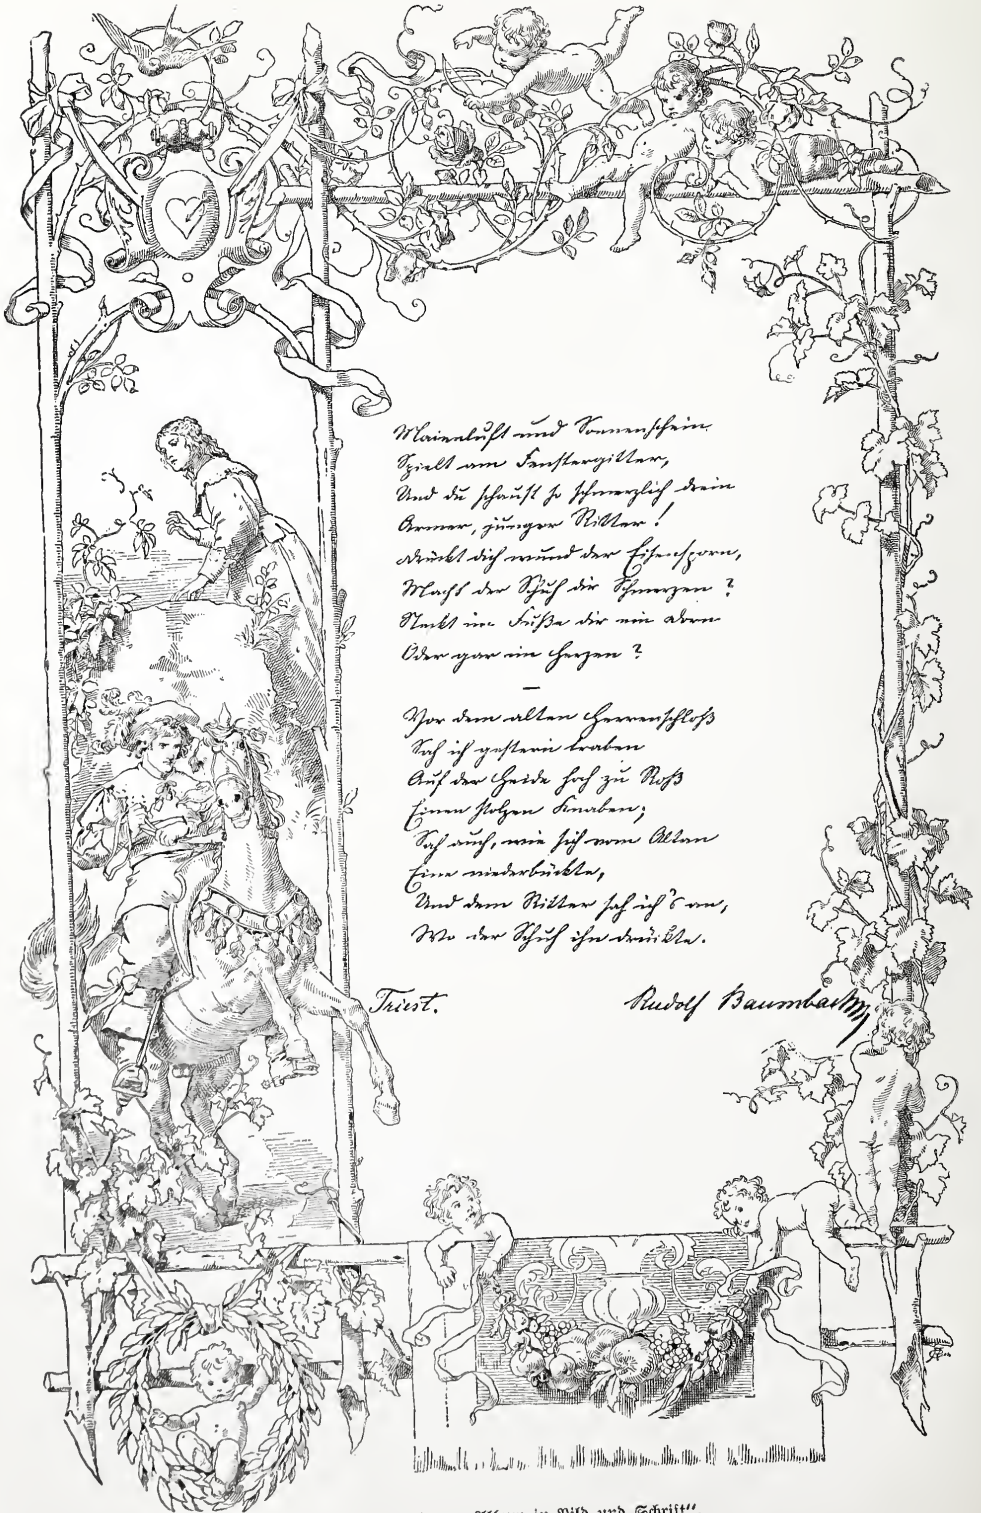 Maienluft und Sonnenschein
Spielt am Fenstergitter,
Und du schaust so schmerzlich drein
Armer, junger Ritter!
Drückt dich wund der Eisensporn,
Macht der Schuh dir Schmerzen?
Steckt im Fuße dir ein Dorn
Oder gar im Herzen?
—
Vor dem alten Herrenschloß
Sah ich gestern traben
Auf der Heide hoch zu Roß
Einen stolzen Knaben;
Sah auch, wie sich vom Altan
Eine niederbückte,
Und dem Ritter sah ich's an,
Wo der Schuh ihn drückte.
Triest. Rudolf Baumbach
in Bild und Schrift".